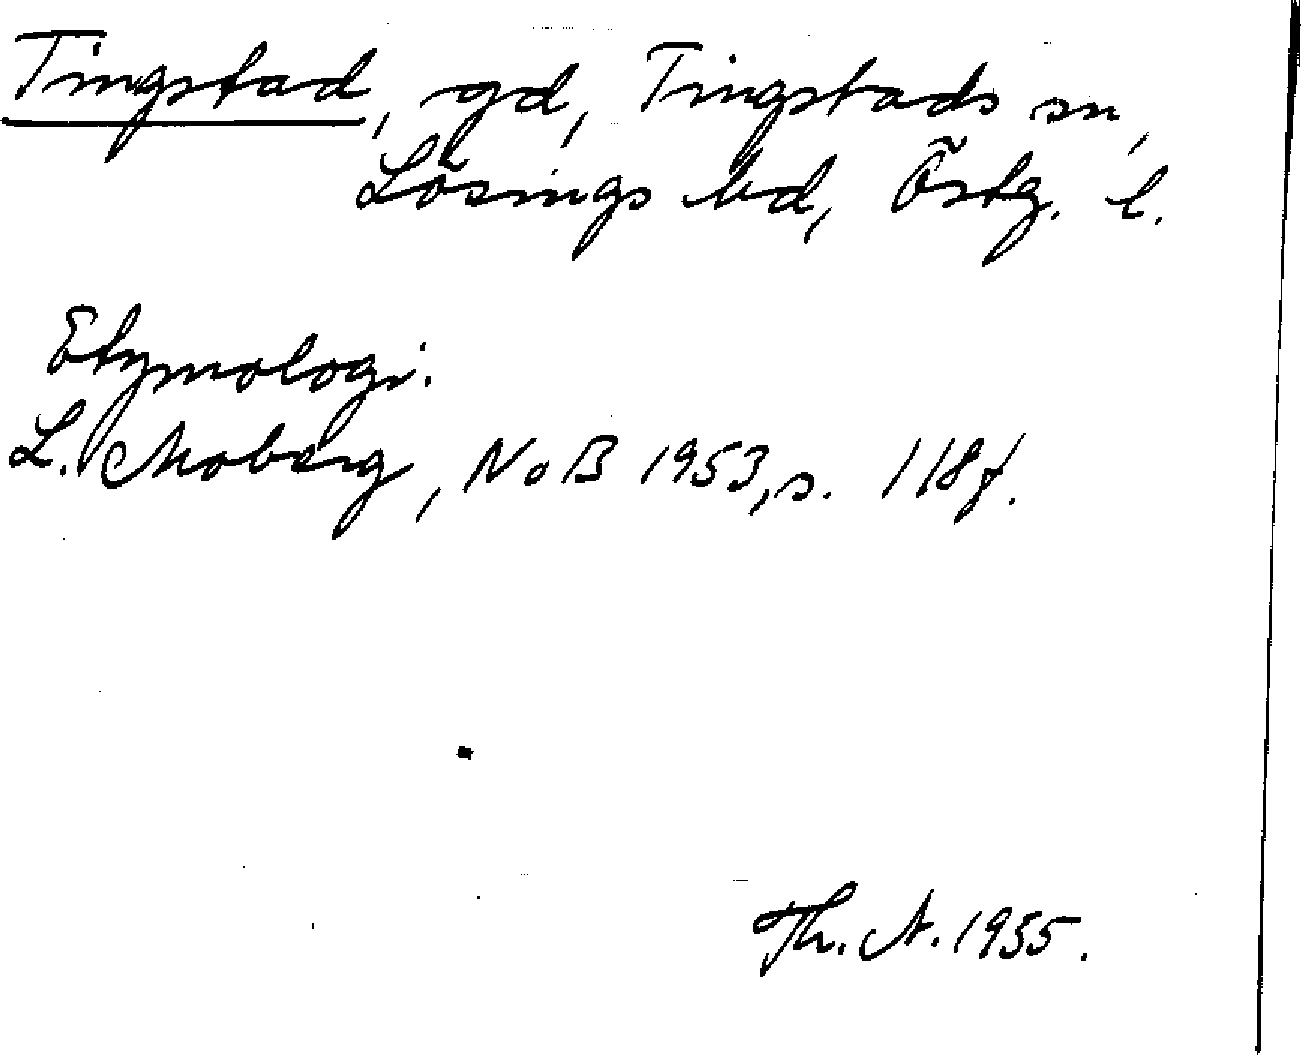 Tingstad, gd, Tingstads sn,
Lösings hd, Östg. l.
Etymologi.
L. Moberg, NoB 1953, s. 118f.
Th. A. 1955.